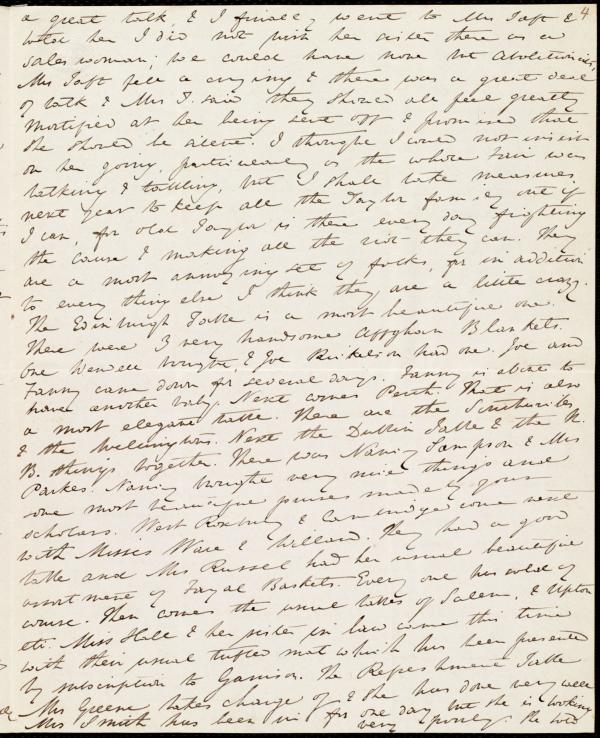 4
a great talk, & I finally went to Mrs Taft &
told her I did not wish her sister there as a
saleswoman; we could have none but Abolitionists,
Mrs Taft fell a crying & there was a great deal
of talk & Mrs T. said they should all feel greatly
mortified at her being sent off & promised that
she should be silent. I thought I would not insist
on her going, particularly as the whole Fair was
talking & tattling, but I shall take measures
next year to keep all the Taylor family out if
I can, for old Taylor is there every day fighting
the cause & making all the riot they can. They
are a most annoying set of folks, for in addition
to every thing else I think they are a little crazy.
The Edinburgh Table is a most beautiful one.
There were 3 very handsome Affghan Blankets.
One Wendell bought, & Joe Ricketson had one. Joe and
Fanny came down for several days. Fanny is about to
have another baby. Next comes Perth. That is also
a most elegant table. There are the
& the Wellingtons. Next the Dublin Table & the N.
B. things together. There was Nancy Sampson & Mrs
Parkes. Nancy bought very nice things and
some most beautiful purses made by your
scholars. West Roxbury & Cambridge come next
with Misses Ware & Willard. They had a good
table and Mrs Russel had her usual beautiful
assortment of Fayal Baskets. Every one has sold of
course. Then comes the usual tables of Salem, & Upton
etc. Miss Hall & her sister in law came this time
with their usual tufted mat which has been presented
by subscription to Garrison. The Refreshment Table
Mrs Greene takes charge of & she has done very well
Mrs Smith has been in for one day but she is looking
very poorly. He told